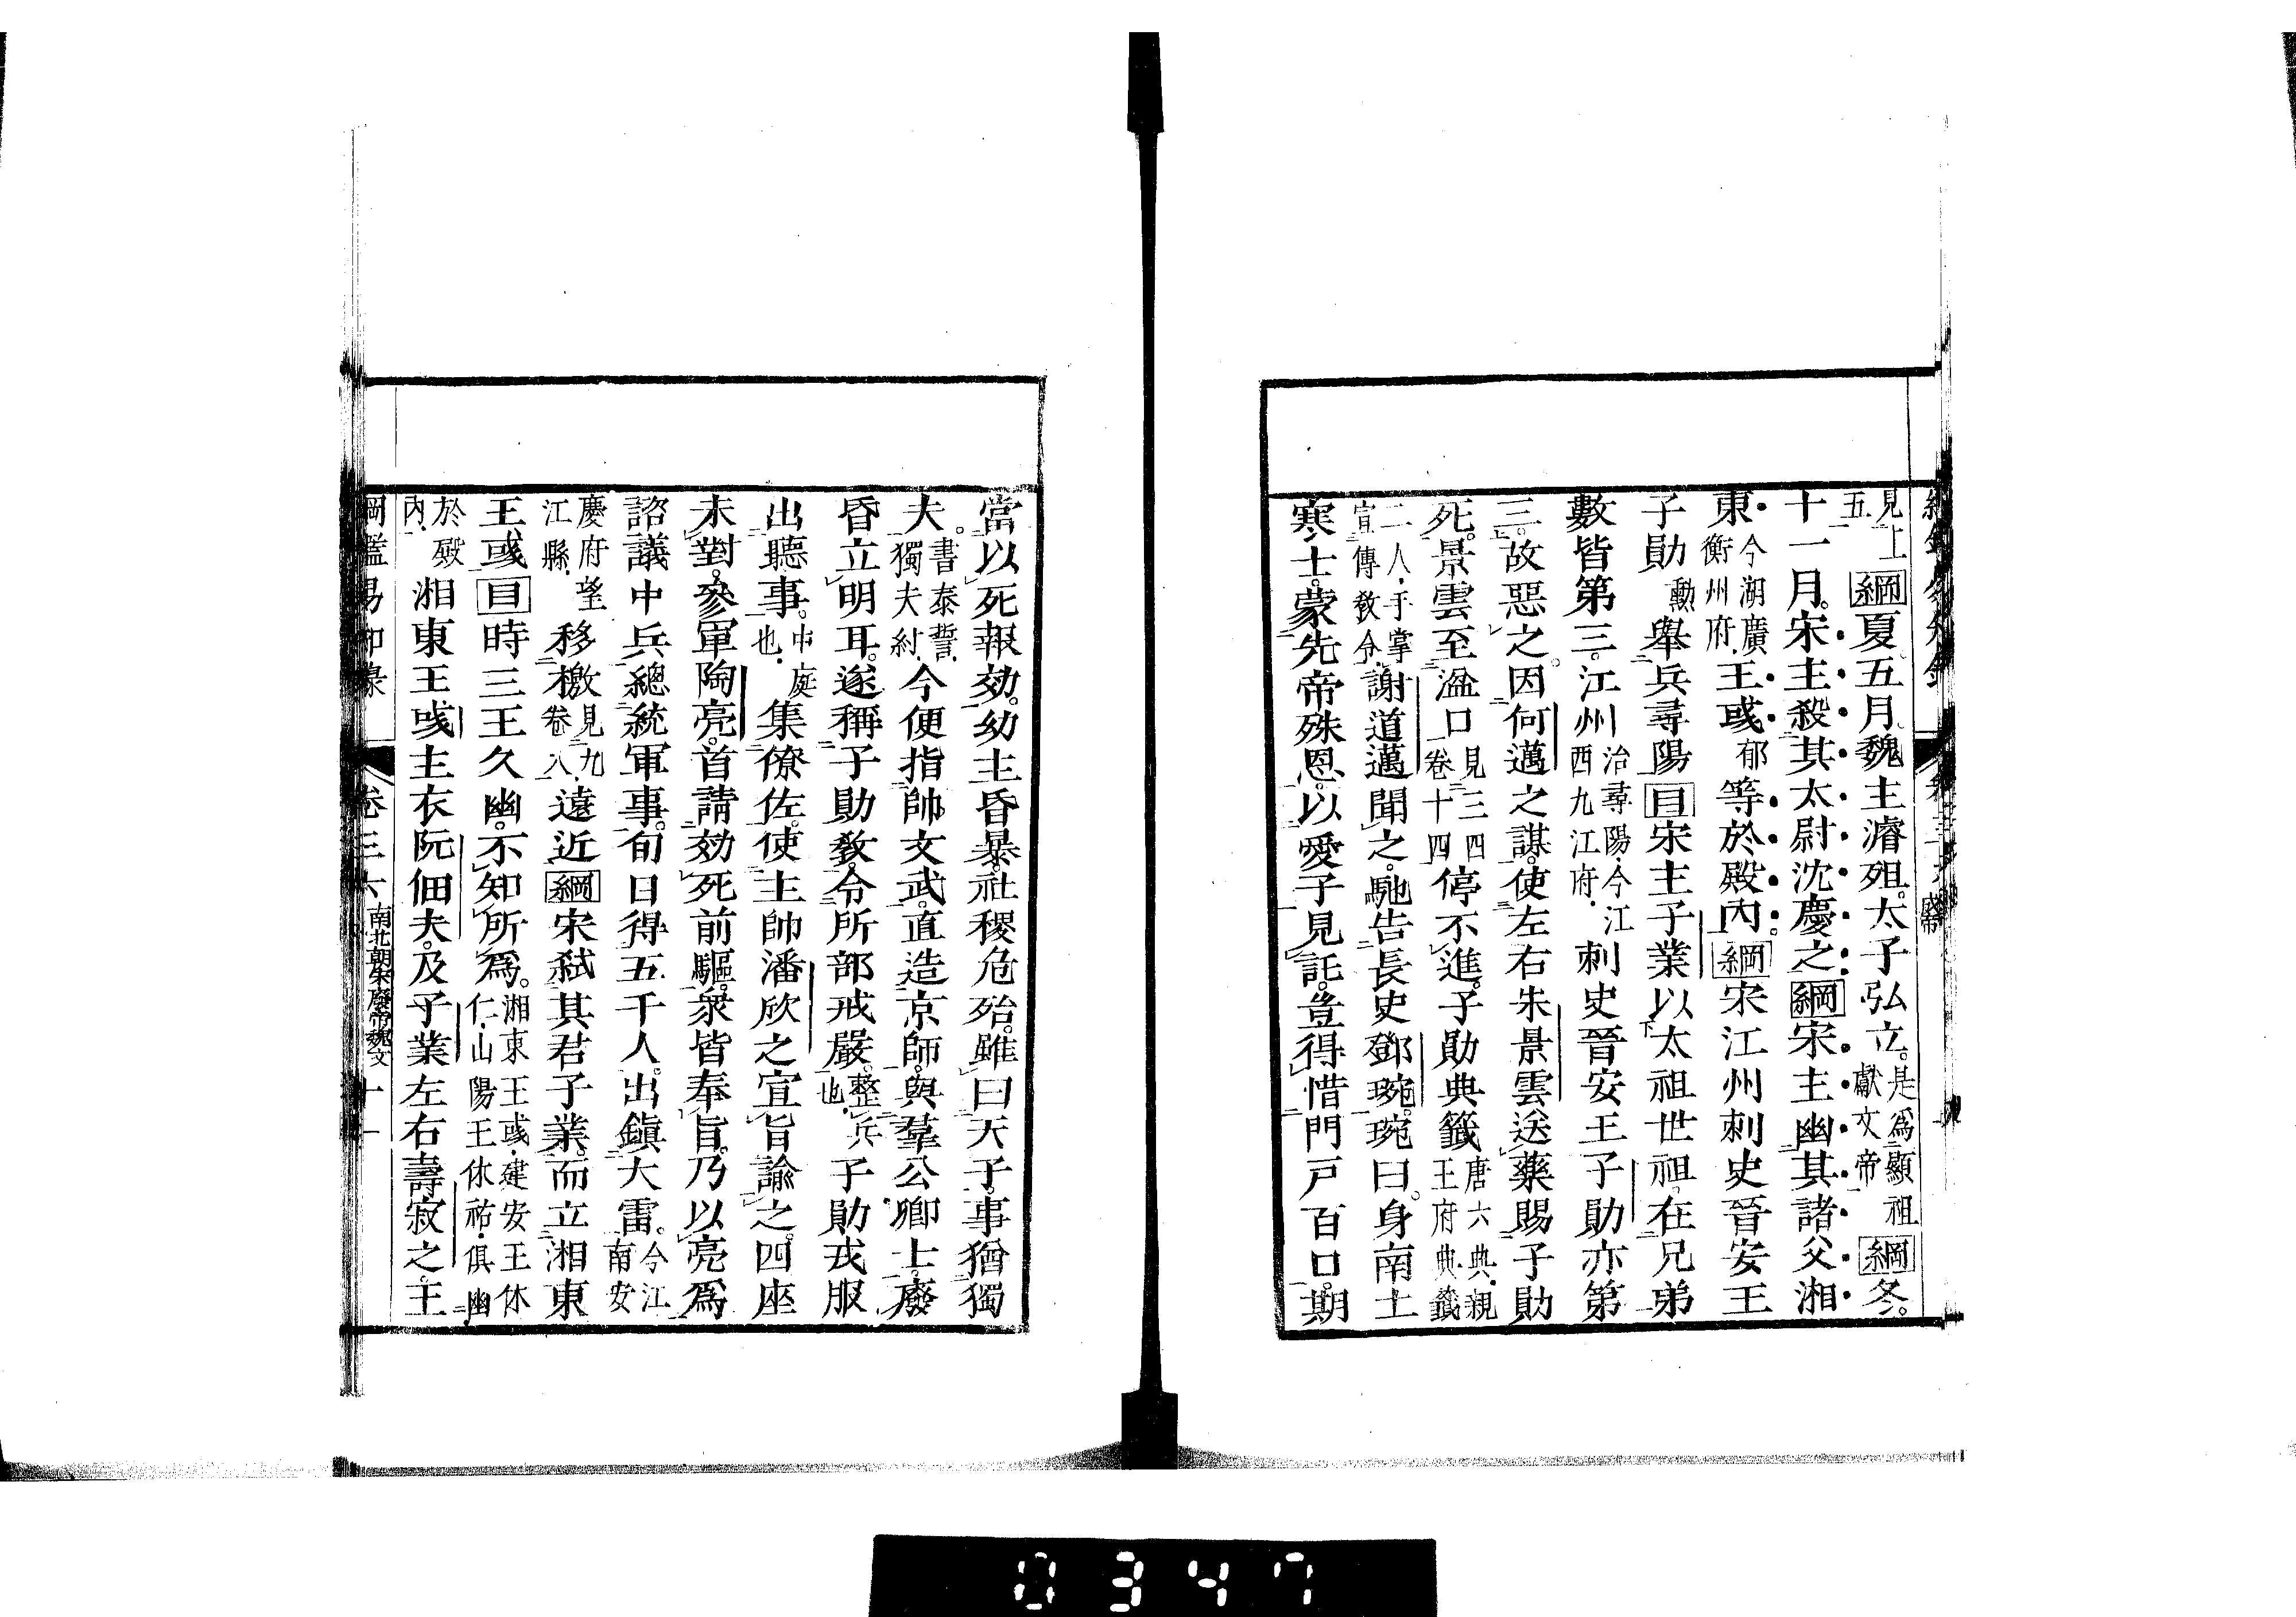 見上五綱夏五月魏主濬殂太子弘立是爲顯祖獻文帝綱冬
十一月宋主殺其太尉沈慶之綱宋主幽其諸父湘
東今湖廣衡州府王彧郁等於殿內綱宋江州刺史晉安王
子勛勳舉兵尋陽目宋主子業以太祖世祖在兄弟
數皆第三江州治尋陽今江西九江府刺史晉安王子勛亦第
三故惡之因何邁之謀使左右朱景雲送藥賜子勛
死景雲至湓口見三四卷十四四停不進子勛典籤唐六典親王府典籤
二人手掌宣傳教令謝道邁聞之馳告長史鄧琬琬曰身南土
寒士蒙先帝殊恩以愛子見託豈得惜門戸百口期
當以死報効幼主昏暴社稷危殆雖曰天子事猶獨
夫書泰誓獨夫紂今便指帥文武直造京師與羣公卿士廢
昏立明耳遂稱子勛教令所部戒嚴整兵也子勛戎服
出聽事中庭也集僚佐使主帥潘欣之宣旨諭之四座
未對參軍陶亮首請効死前驅衆皆奉旨乃以亮爲
諮議中兵總統軍事旬日得五千人出鎭大雷今江南安
慶府望江縣移檄見九卷八遠近綱宋弒其君子業而立湘東
王彧目時三王久幽不知所爲湘東王彧建安王休仁山陽王休祐俱幽
於殿內湘東王彧主衣阮佃夫及子業左右壽寂之王
綱鑑易知録 卷三六 南北朝宋廢帝魏文 十一